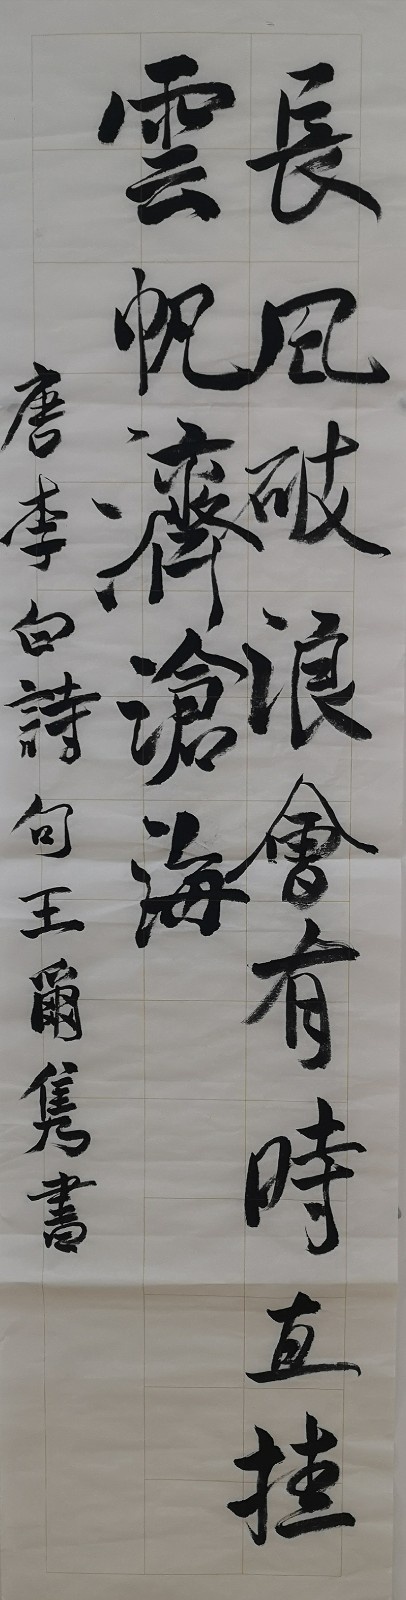 長風破浪會有時直挂
雲帆濟滄海
唐李白詩句王爾隽書